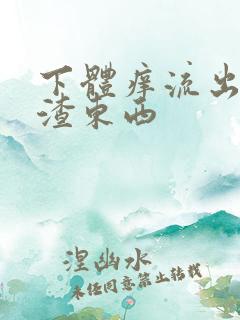 下體痒流出
渣東西
涅幽水
未经同意禁止转载